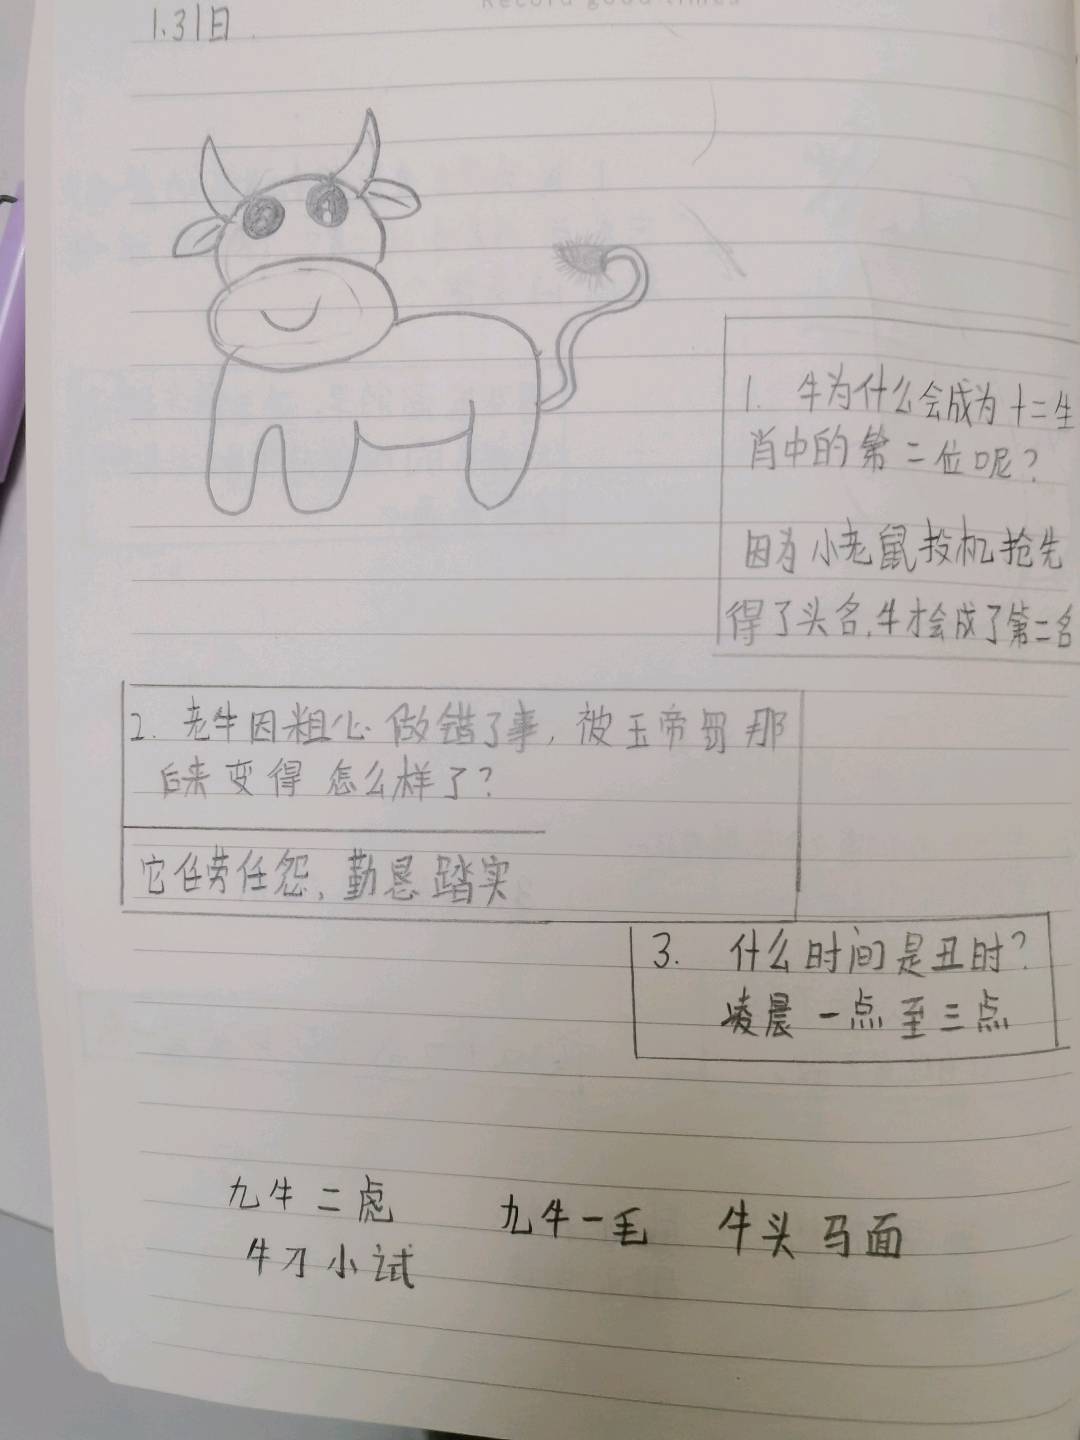 Record good times
1.31日
1. 牛为什么会成为十二生
肖中的第二位呢?
因为小老鼠投机抢先
得了头名,牛才会成了第二名
2. 老牛因粗心做错了事,被玉帝罚那
后来变得怎么样了?
它任劳任怨,勤恳踏实
3. 什么时间是丑时?
凌晨一点至三点
九牛二虎
九牛一毛 牛头马面
牛刀小试